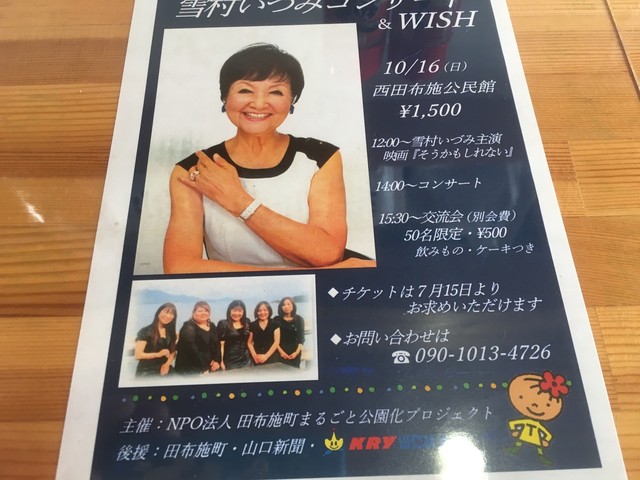 雪村いづみコンサート
& WISH
10/16(日)
西田布施公民館
¥1,500
12:00～雪村いづみ主演
映画『そうかもしれない』
14:00～コンサート
15:30～交流会(別会費)
50名限定・¥500
飲みもの・ケーキつき
◆チケットは7月15日より
お求めいただけます
◆お問い合わせは
☎090-1013-4726
主催：NPO法人 田布施町まるごと公園化プロジェクト
後援：田布施町・山口新聞・KRY
TTP